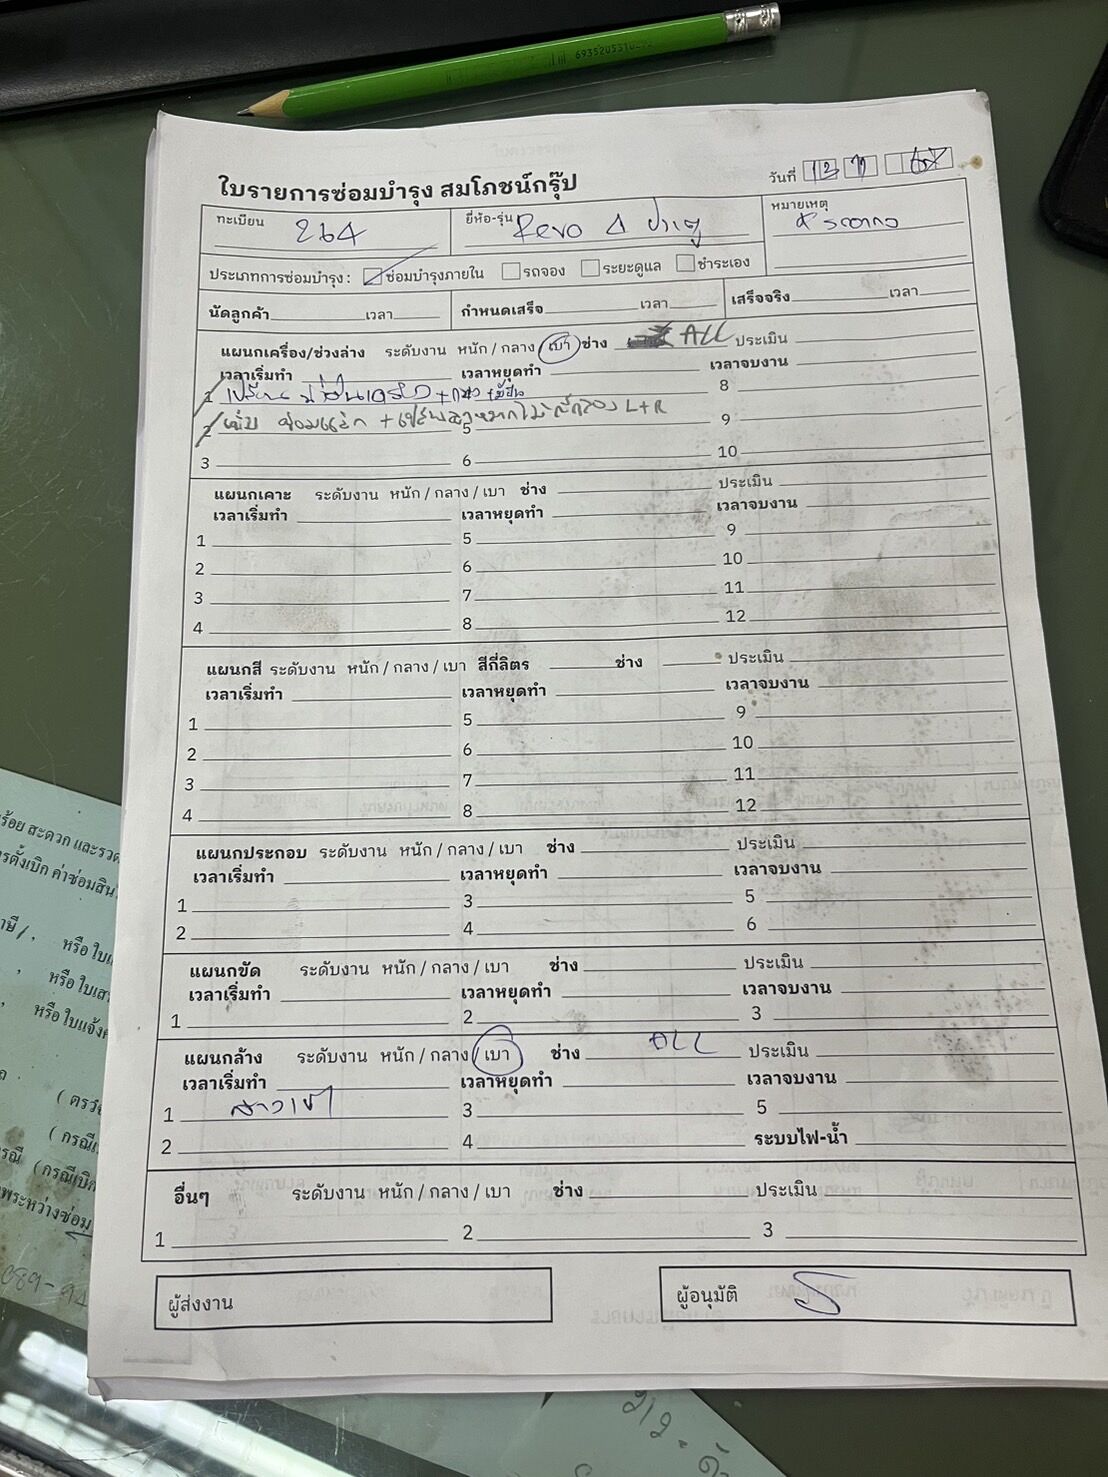 6935205310
ใบรายการซ่อมบำรุง สมโภชน์กรุ๊ป
วันที่ 12
ทะเบียน 264 ยี่ห้อ-รุ่น Revo 4 ประตู หมายเหตุ
ประเภทการซ่อมบำรุง : ซ่อมบำรุงภายใน รถจอง ระยะดูแล ชำระเอง
นัดลูกค้า เวลา กำหนดเสร็จ เวลา เสร็จจริง เวลา
แผนกเครื่อง/ช่วงล่าง ระดับงาน หนัก / กลาง / เบา ช่าง ALL ประเมิน
เวลาเริ่มทำ เวลาหยุดทำ เวลาจบงาน
1 8
2 L+R 5 9
3 6 10
แผนกเคาะ ระดับงาน หนัก / กลาง / เบา ช่าง ประเมิน
เวลาเริ่มทำ เวลาหยุดทำ เวลาจบงาน
1 5 9
2 6 10
3 7 11
4 8 12
แผนกสี ระดับงาน หนัก / กลาง / เบา สีกี่ลิตร ช่าง ประเมิน
เวลาเริ่มทำ เวลาหยุดทำ เวลาจบงาน
1 5 9
2 6 10
3 7 11
4 8 12
แผนกประกอบ ระดับงาน หนัก / กลาง / เบา ช่าง ประเมิน
เวลาเริ่มทำ เวลาหยุดทำ เวลาจบงาน
1 3 5
2 4 6
แผนกขัด ระดับงาน หนัก / กลาง / เบา ช่าง ประเมิน
เวลาเริ่มทำ เวลาหยุดทำ เวลาจบงาน
1 2 3
แผนกล้าง ระดับงาน หนัก / กลาง / เบา ช่าง ALL ประเมิน
เวลาเริ่มทำ เวลาหยุดทำ เวลาจบงาน
1 3 5
2 4 ระบบไฟ-น้ำ
อื่นๆ ระดับงาน หนัก / กลาง / เบา ช่าง ประเมิน
1 2 3
ผู้ส่งงาน ผู้อนุมัติ
ร้อย สะดวก และรวด
ารตั้งเบิก ค่าซ่อมสิน
หรือ ใบ
หรือ ใบเส
หรือ ใบแจ้ง
( ตรวจ
( กรณี
(กรณีเบิก
ระหว่างซ่อม
089-94
212